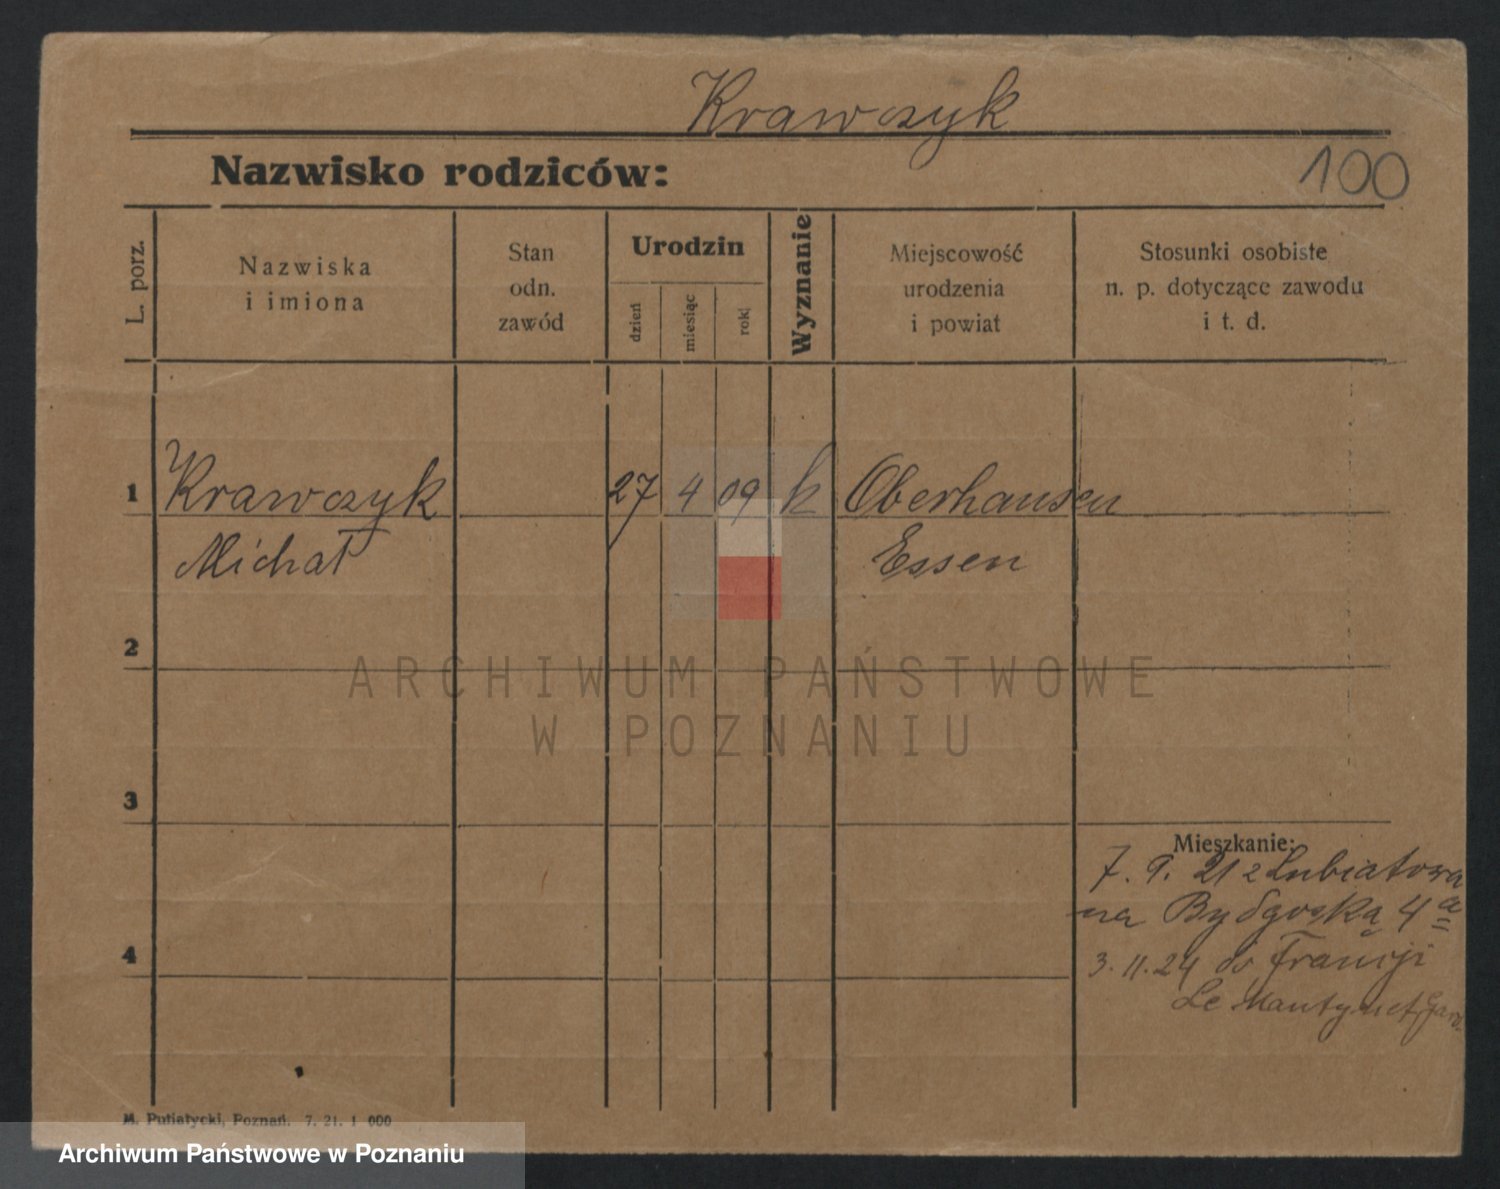 Krawczyk
Nazwisko rodziców:
100
L. porz.
Nazwiska
i imiona
Stan
odn.
zawód
Urodzin
dzień
miesiąc
rok
Wyznanie
Miejscowość
urodzenia
i powiat
Stosunki osobiste
n. p. dotyczące zawodu
i t. d.
1 Krawczyk 27 4 09 k Oberhausen
Michał Essen
2
ARCHIWUM PAŃSTWOWE
W POZNANIU
3
Mieszkanie:
7. 9. 21 z Lubiatowa
na Bydgoską 4a
4
3. 11. 24 do Francji
Le
M. Putiatycki, Poznań. 7. 21. 1 000
Archiwum Państwowe w Poznaniu